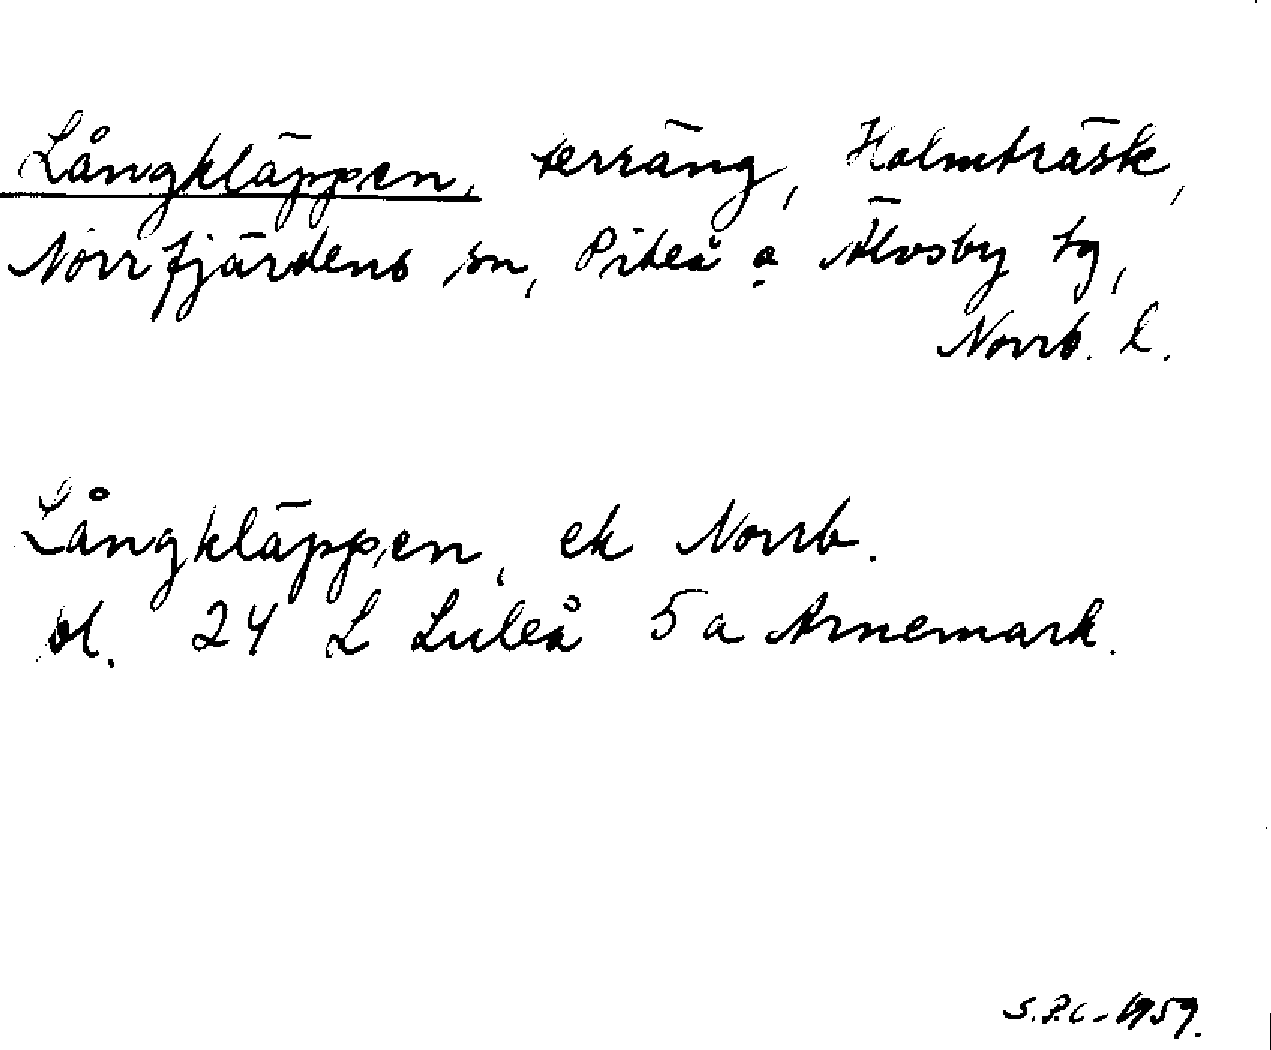 Långkläppen, terräng, Holmträsk,
Norrfjärdens sn, Piteå o Älvsby tg,
Norrb. l.
Långkläppen, ek Norrb.
bl. 24 L Luleå 5 a Arnemark.
S.P.C. 1959.